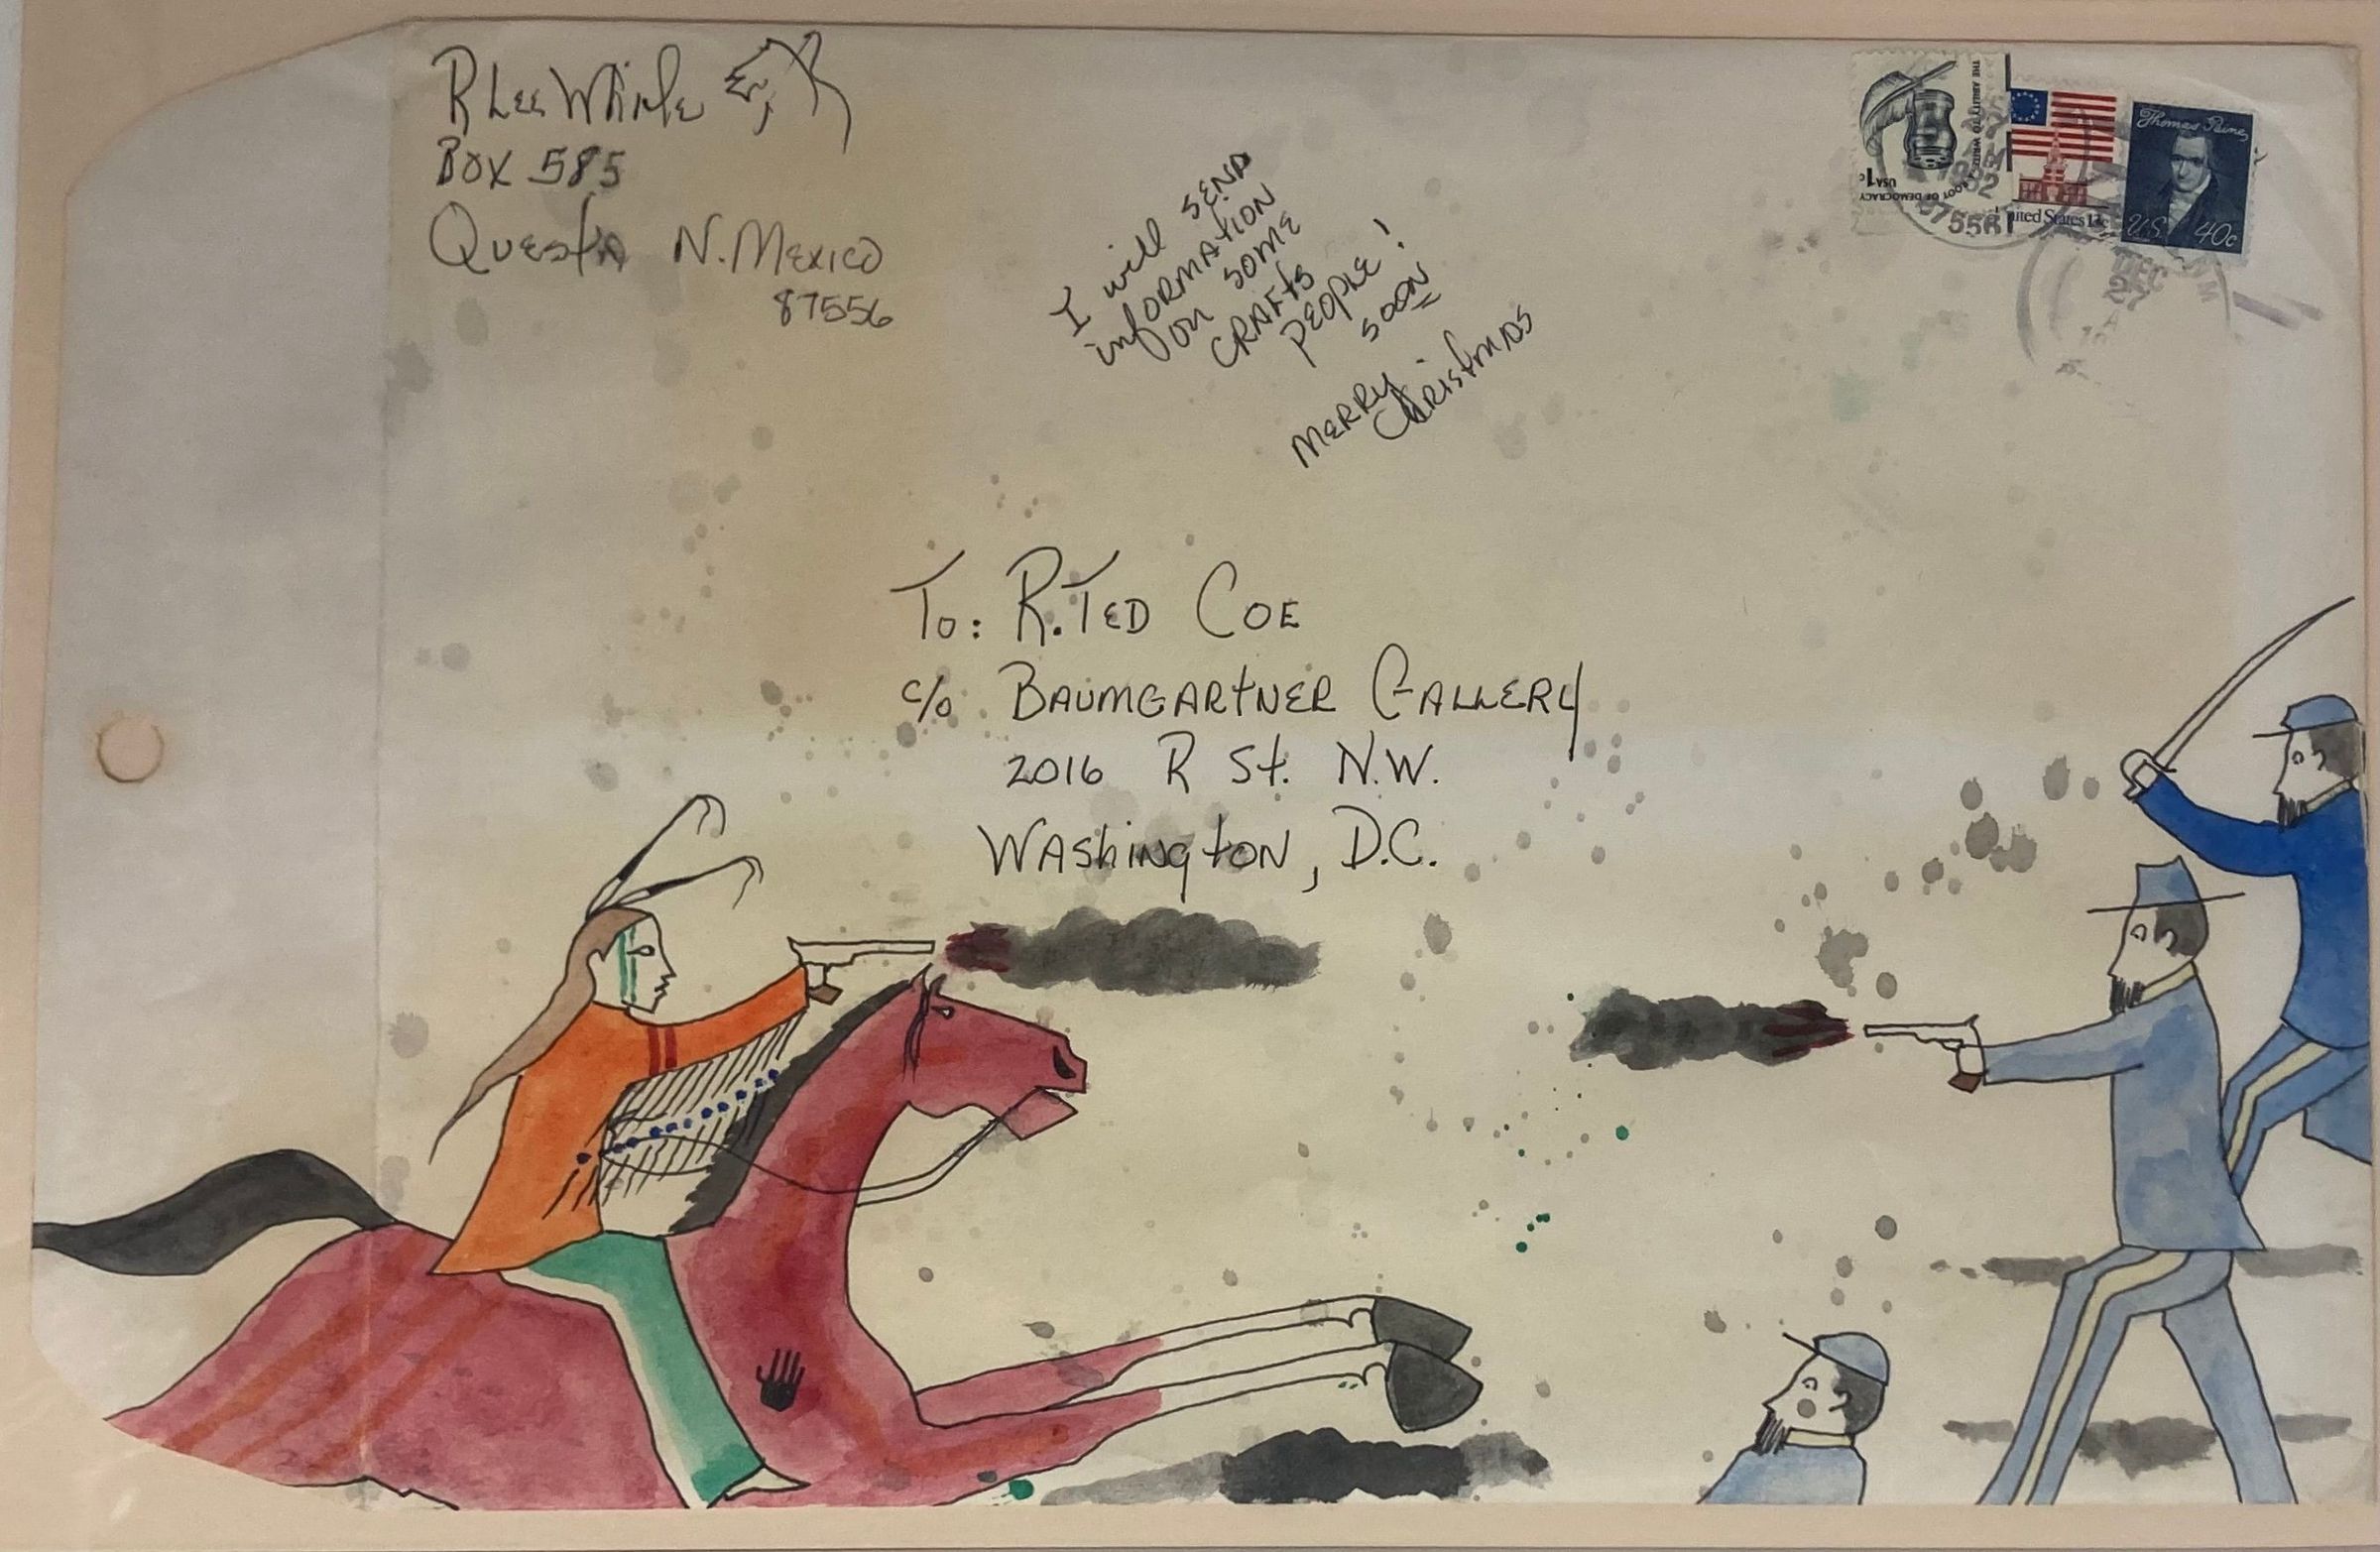 R Lee White
Box 585
Questa N. Mexico
87556
I will send
information
on some
crafts
people!
soon
Merry
Christmas
THE ABILITY TO WRITE
A ROOT OF DEMOCRACY
USA 1c
United States 13c
Thomas Paine
U.S. 40c
DEC
27
To: R. Ted Coe
c/o Baumgartner Gallery
2016 R St. N.W.
Washington, D.C.